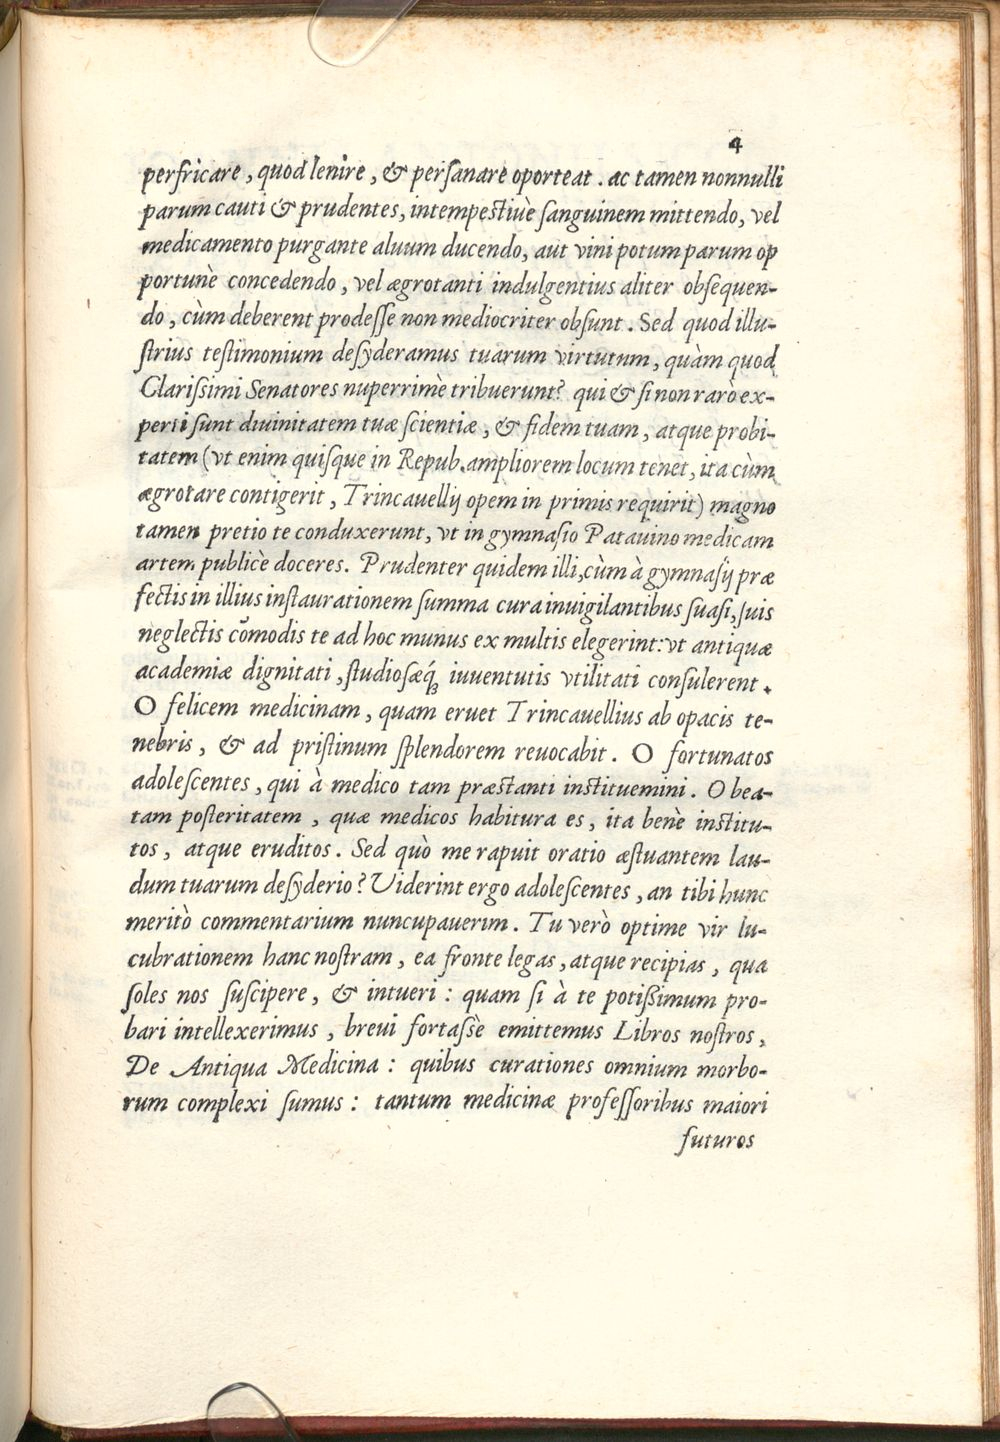 4
perfricare, quod lenire, & persanare oporteat. ac tamen nonnulli
parum cauti & prudentes, intempestiuè sanguinem mittendo, vel
medicamento purgante aluum ducendo, aut vini potum parum op
portunè concedendo, vel ægrotanti indulgentius aliter obsequen-
do, cùm deberent prodesse non mediocriter obsunt. Sed quod illu-
strius testimonium desyderamus tuarum virtutum, quàm quod
Clarissimi Senatores nuperrimè tribuerunt? qui & si non rarò ex-
perti sunt diuinitatem tuæ scientiæ, & fidem tuam, atque probi-
tatem (vt enim quisque in Repub. ampliorem locum tenet, ita cùm
ægrotare contigerit, Trincauellij opem in primis requirit) magno
tamen pretio te conduxerunt, vt in gymnasio Patauino medicam
artem publicè doceres. Prudenter quidem illi, cùm à gymnasij præ
fectis in illius instaurationem summa cura inuigilantibus suasi, suis
neglectis cõmodis te ad hoc munus ex multis elegerint: vt antiquæ
academiæ dignitati, studiosæq́; iuuentutis vtilitati consulerent.
O felicem medicinam, quam eruet Trincauellius ab opacis te-
nebris, & ad pristinum splendorem reuocabit. O fortunatos
adolescentes, qui à medico tam præstanti instituemini. O bea-
tam posteritatem, quæ medicos habitura es, ita benè institu-
tos, atque eruditos. Sed quò me rapuit oratio æstuantem lau-
dum tuarum desyderio? Viderint ergo adolescentes, an tibi hunc
meritò commentarium nuncupauerim. Tu verò optime vir lu-
cubrationem hanc nostram, ea fronte legas, atque recipias, qua
soles nos suscipere, & intueri: quam si à te potissimum pro-
bari intellexerimus, breui fortassè emittemus Libros nostros,
De Antiqua Medicina: quibus curationes omnium morbo-
rum complexi sumus: tantum medicinæ professoribus maiori
futuros